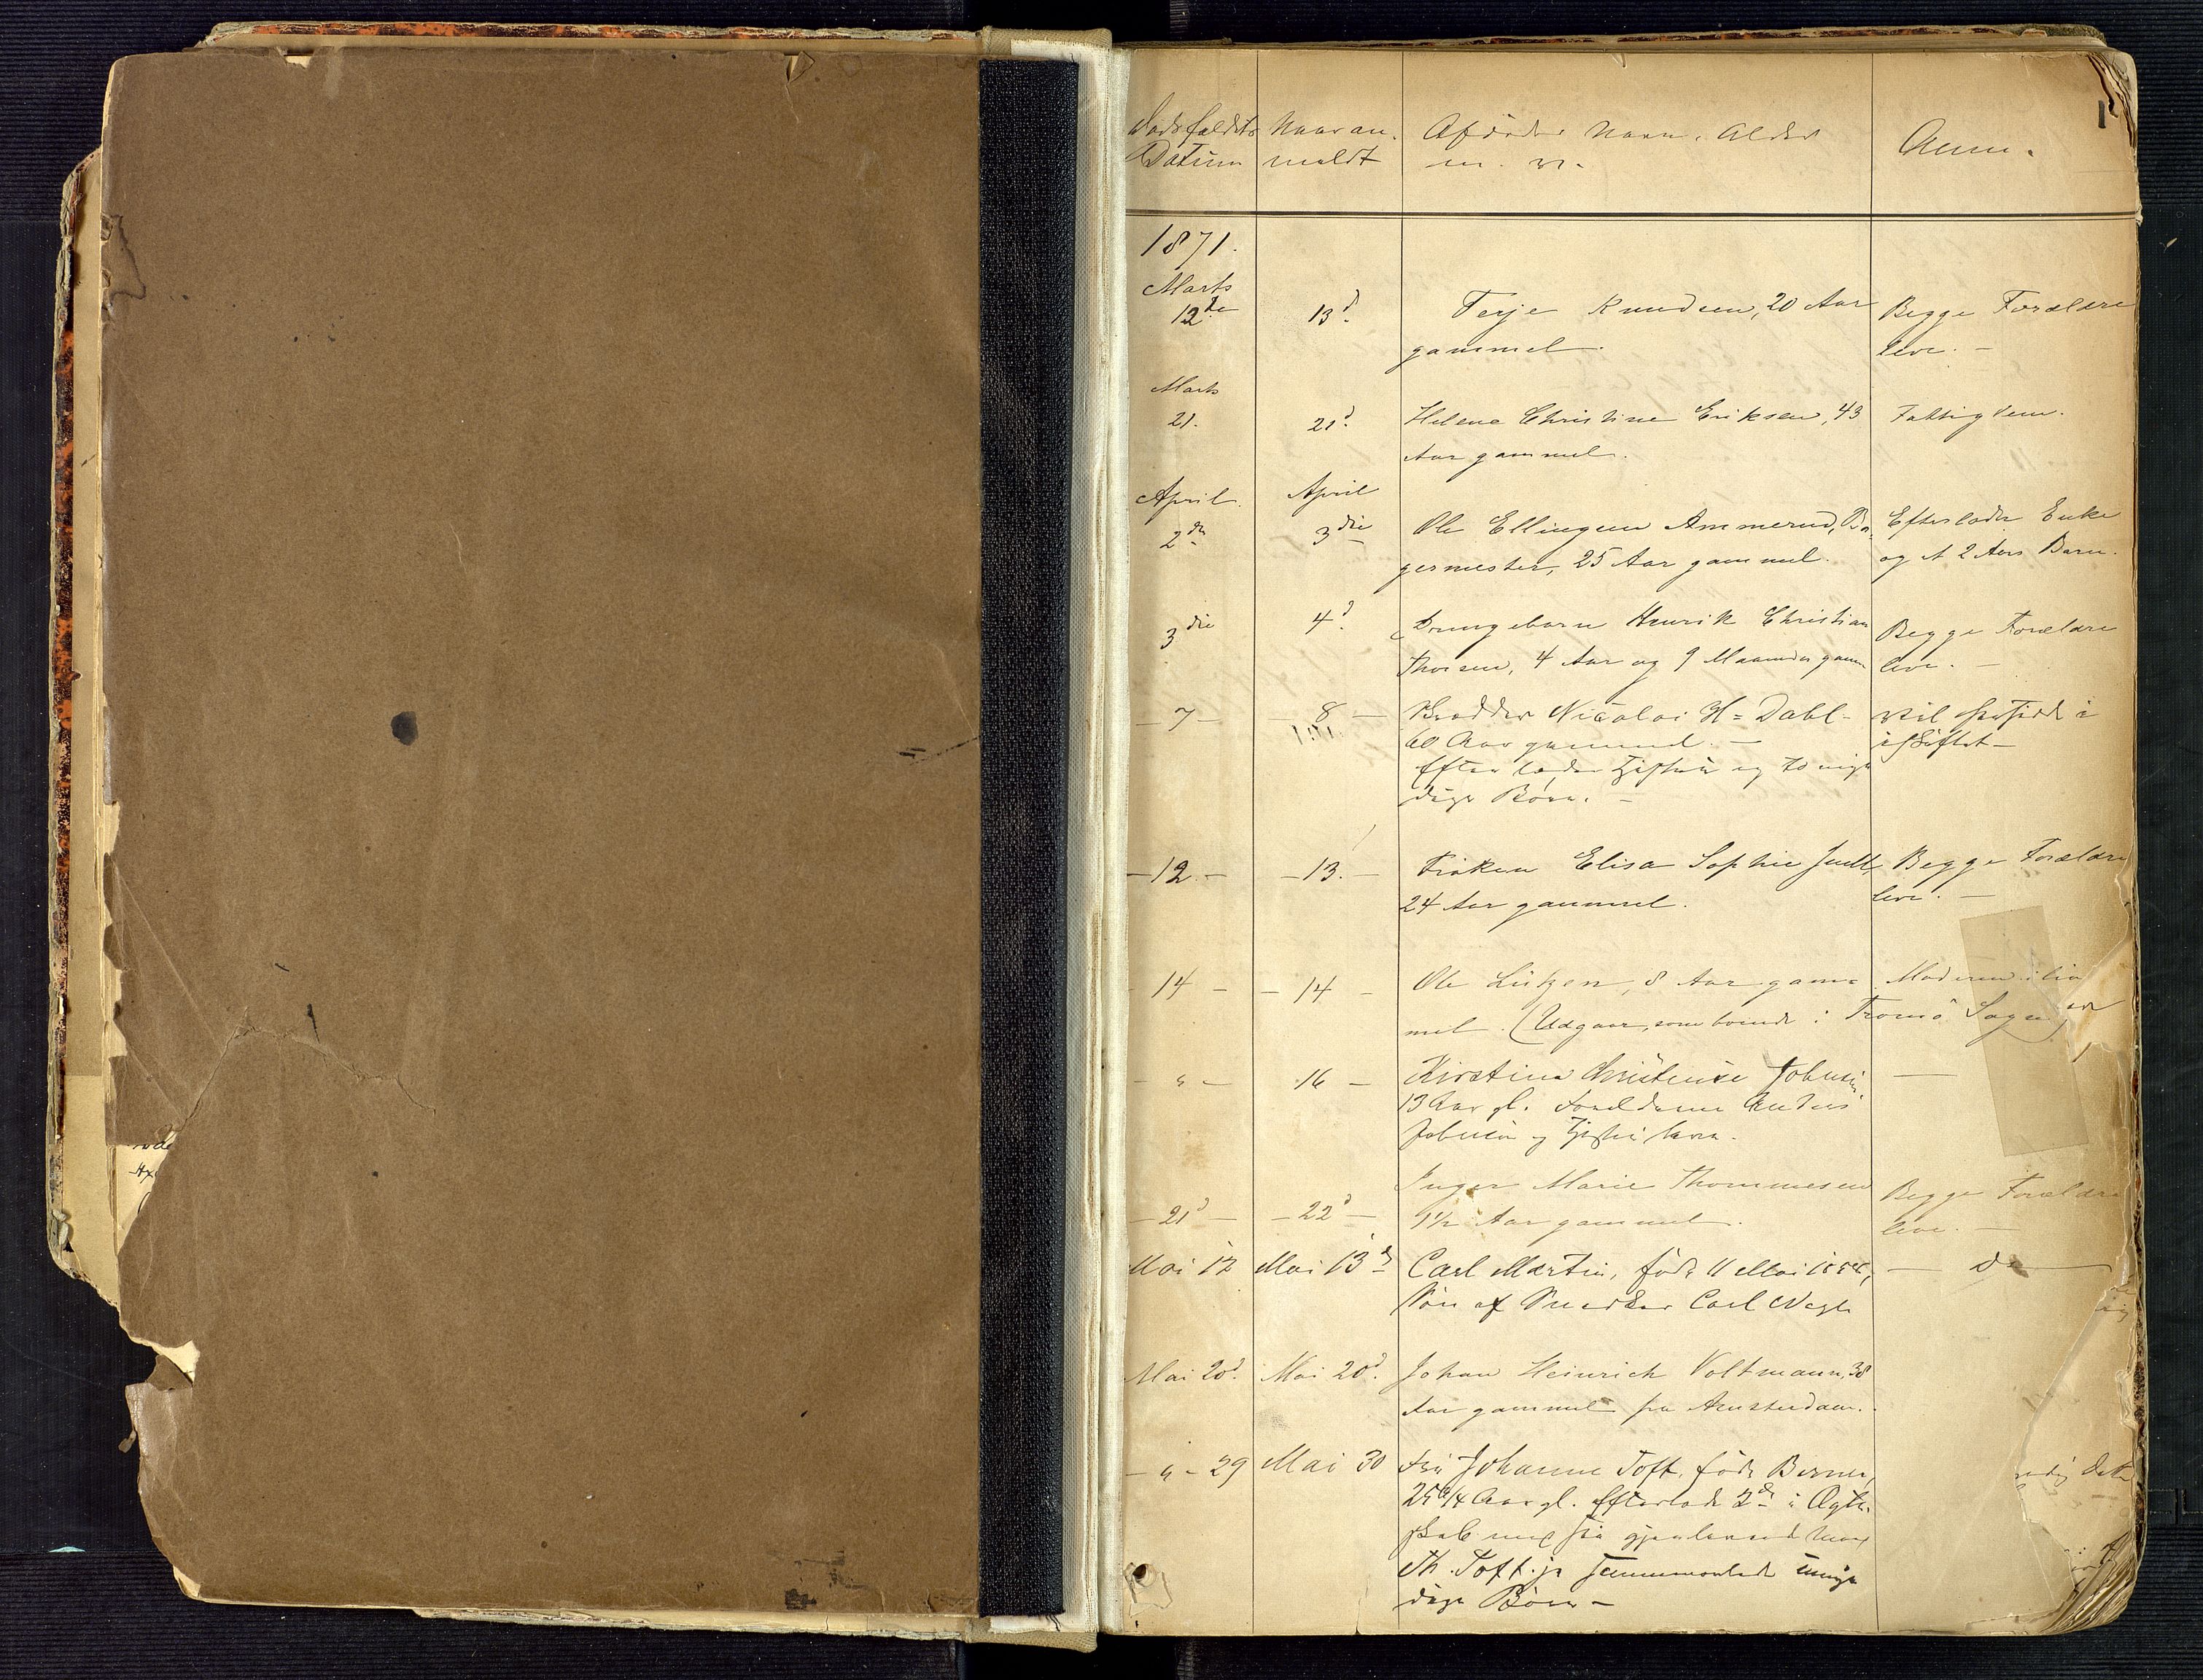 1
Dødsfaldets Naar an- Afdødes Navn, Alder Anm.
Datum meldt m. v.
1871.
Marts
12te 13d. Terje Knudsen, 20 Aar Begge Forældre
gammel. leve. —
Marts
21. 21d. Helene Christine Eriksen, 43 Fattiglem.
Aar gammel.
April April
2den 3die Ole Ellingsen Ammerud, Ba- Efterlader Enke
germester, 25 Aar gammel. og et 2 Aars Barn.
3die 4d. Drengebarn Henrik Christian Begge Forældre
Thorsen, 4 Aar og 9 Maaneder gamm leve. —
— 7 — 8 — Nicolai H= Dahl- vil i
60 Aar gammel. —
Efterlader Hustru og umyn
dige Børn. —
— 12 — — 13. — Frøken Elisa Sophie Juell Begge Forældre
24 Aar gammel. leve. —
— 14 — — 14 — Ole Lützen, 8 Aar gam= Moderen i
mel. (Udgaar, som boende i Tromø Sogn)
— " — 16 — Kirstine Christense Johnsen —
13 Aar gl. Forældrene Anders
Johnsen og Hustru leve.
— 21d — — 22d — Inger Marie Thommesen Begge Forældre
1½ Aar gammel. leve. —
Mai 12 Mai 13de Carl Martin, født 11 Mai — do —
Søn af Snedker Carl
Mai 20d. Mai 20d. Johan Heinrich Voltmann, 38
Aar gammel fra Amsterdam.
— " — 29 Mai 30 Fru Johanne Toft, født
25 Aar gl. Efterlader 2de i Ægte-
skab med sin gjenlevende Mand
Th. Toft jr sammenavlede umyn
dige Børn —